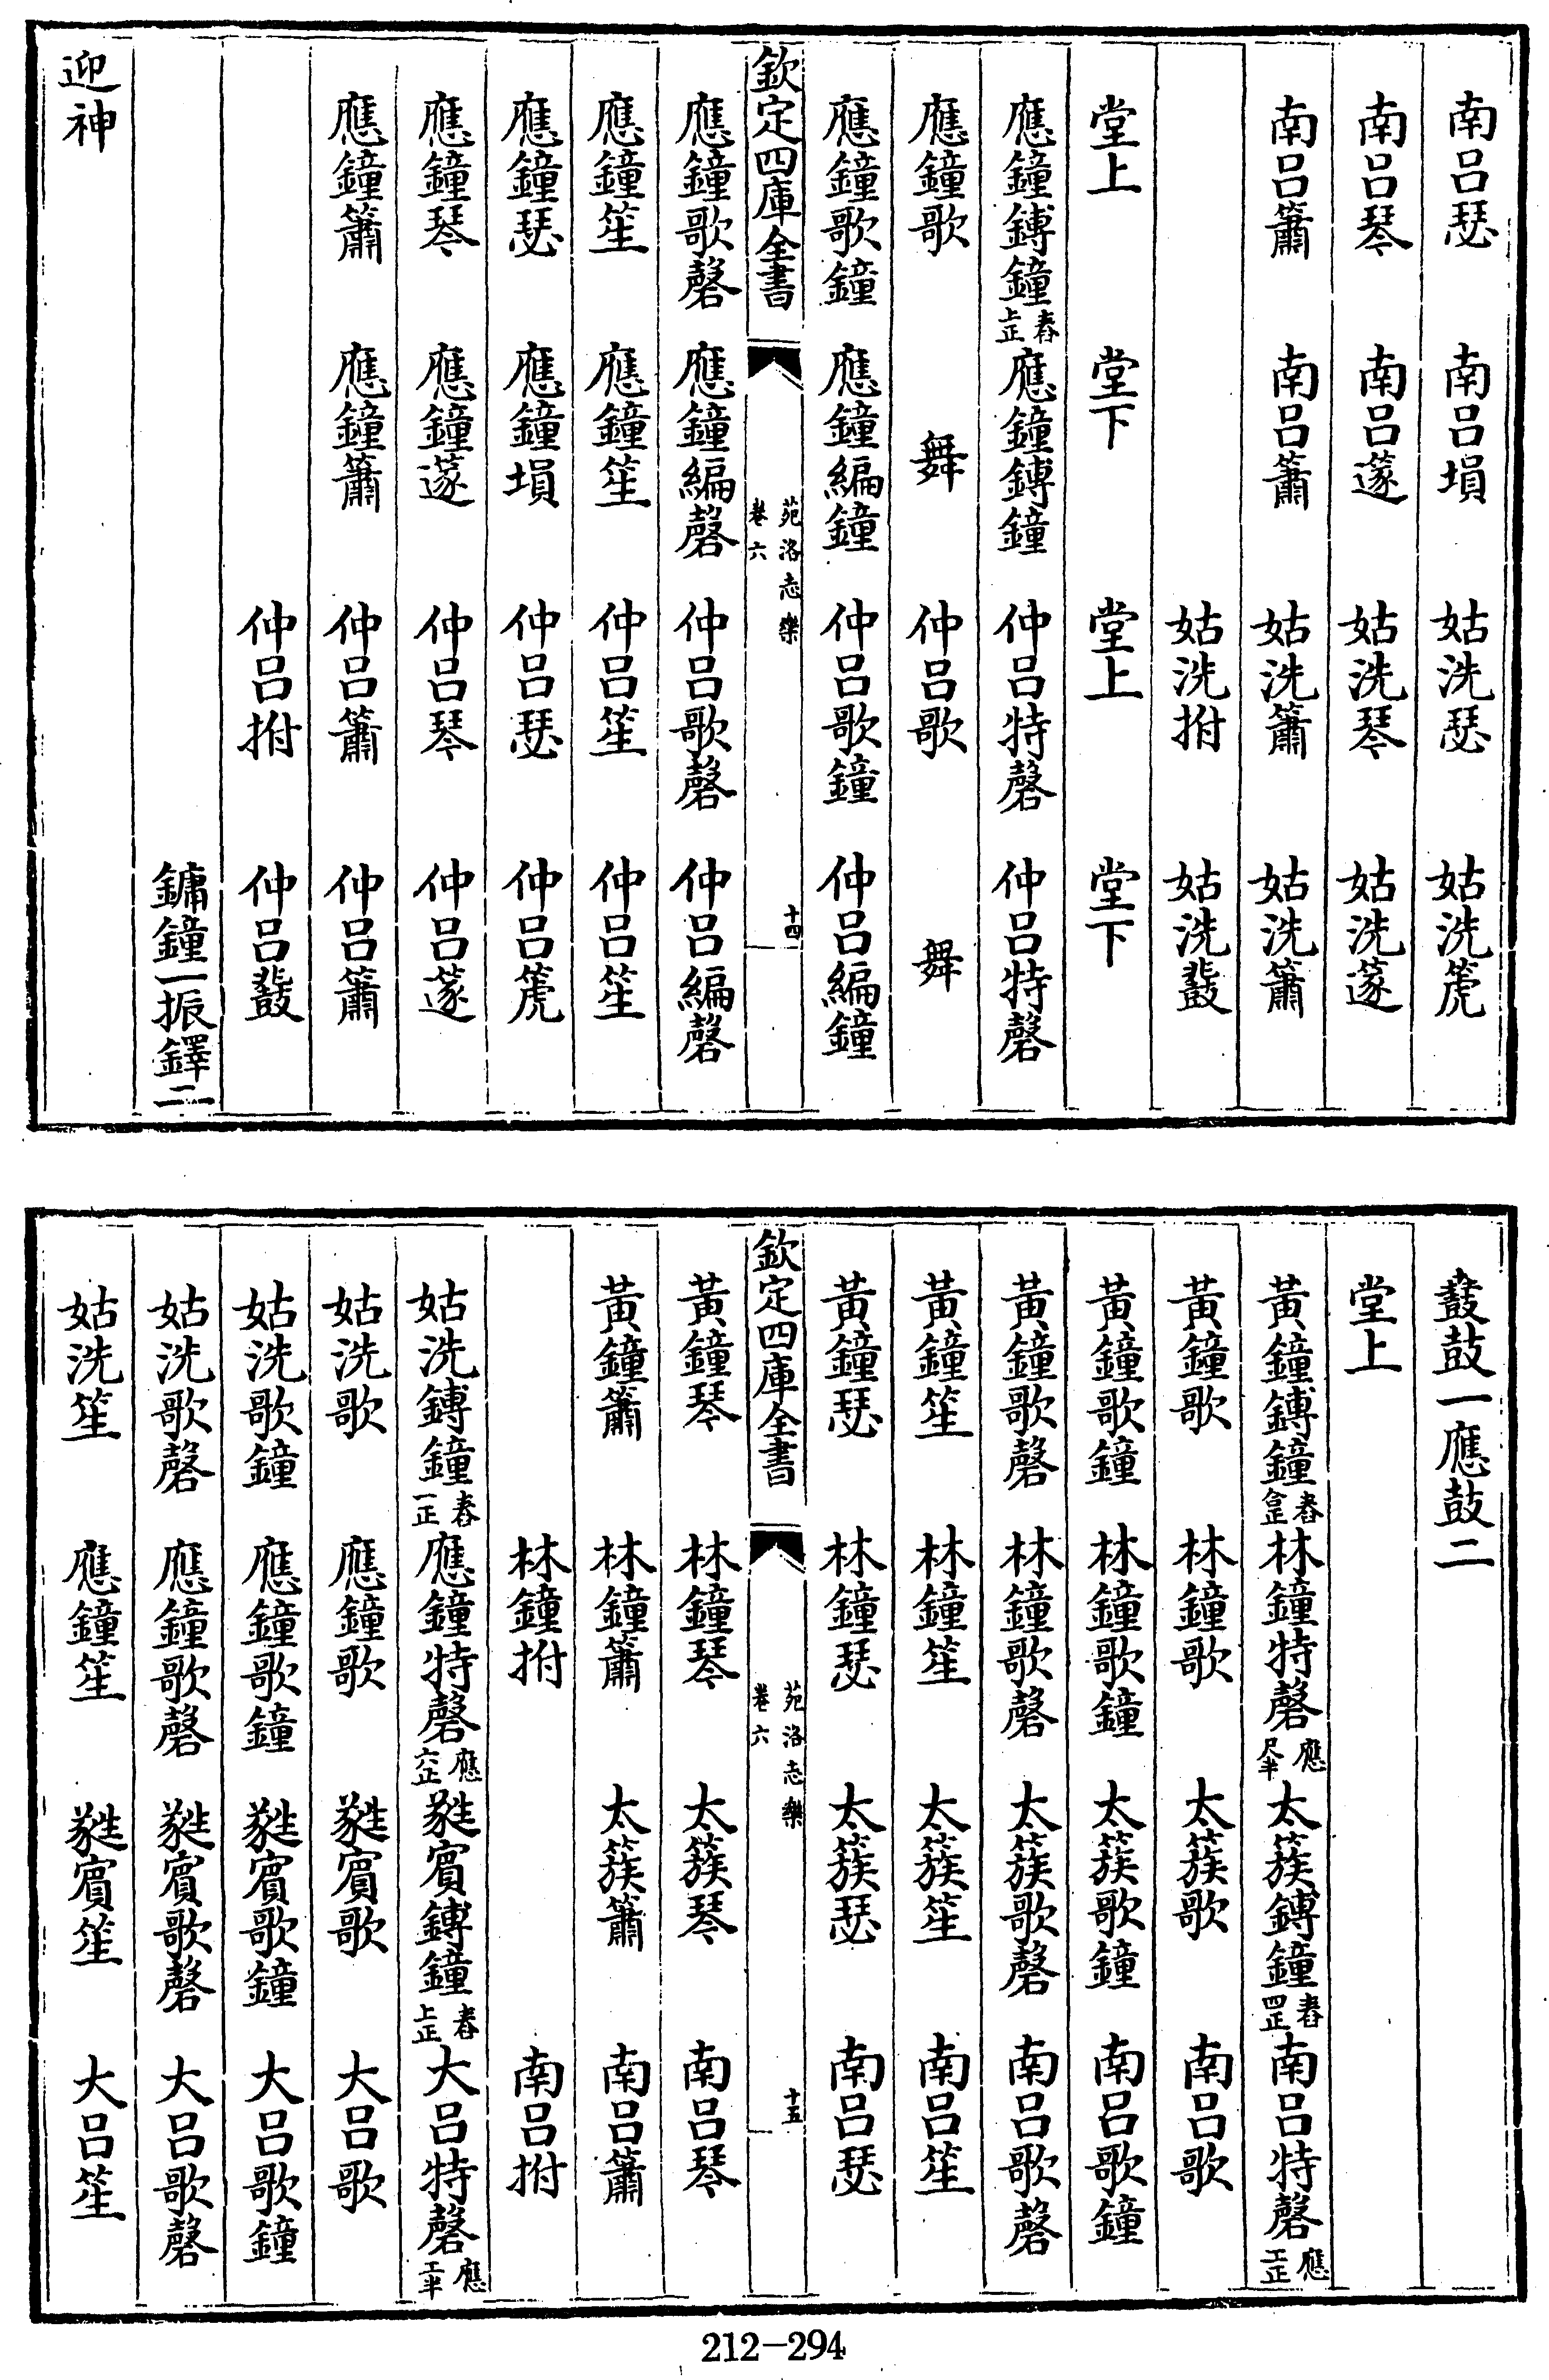 南呂瑟 南呂塤 姑洗瑟 姑洗箎
南呂琴 南呂篴 姑洗琴 姑洗篴
南呂簫 南呂簫 姑洗簫 姑洗簫
姑洗拊 姑洗鼗
堂上 堂下 堂上 堂下
應鐘鎛鐘舂上正 應鐘鎛鐘 仲呂特磬 仲呂特磬
應鐘歌 舞 仲呂歌 舞
應鐘歌鐘 應鐘編鐘 仲呂歌鐘 仲呂編鐘
欽定四庫全書 苑洛志樂 卷六 十四
應鐘歌磬 應鐘編磬 仲呂歌磬 仲呂編磬
應鐘笙 應鐘笙 仲呂笙 仲呂笙
應鐘瑟 應鐘塤 仲呂瑟 仲呂箎
應鐘琴 應鐘篴 仲呂琴 仲呂篴
應鐘簫 應鐘簫 仲呂簫 仲呂簫
仲呂拊 仲呂鼗
鏞鐘一振鐸二
迎神
鼖鼓一應鼓二
堂上
黃鐘鎛鐘舂合正 林鐘特磬應尺半 太簇鎛鐘舂四正 南呂特磬應工正
黃鐘歌 林鐘歌 太簇歌 南呂歌
黃鐘歌鐘 林鐘歌鐘 太簇歌鐘 南呂歌鐘
黃鐘歌磬 林鐘歌磬 太簇歌磬 南呂歌磬
黃鐘笙 林鐘笙 太簇笙 南呂笙
黃鐘瑟 林鐘瑟 太簇瑟 南呂瑟
欽定四庫全書 苑洛志樂 卷六 十五
黃鐘琴 林鐘琴 太簇琴 南呂琴
黃鐘簫 林鐘簫 太簇簫 南呂簫
林鐘拊 南呂拊
姑洗鎛鐘舂一正 應鐘特磬應六正 蕤賓鎛鐘舂上正 大呂特磬應工半
姑洗歌 應鐘歌 蕤賓歌 大呂歌
姑洗歌鐘 應鐘歌鐘 蕤賓歌鐘 大呂歌鐘
姑洗歌磬 應鐘歌磬 蕤賓歌磬 大呂歌磬
姑洗笙 應鐘笙 蕤賓笙 大呂笙
212—294